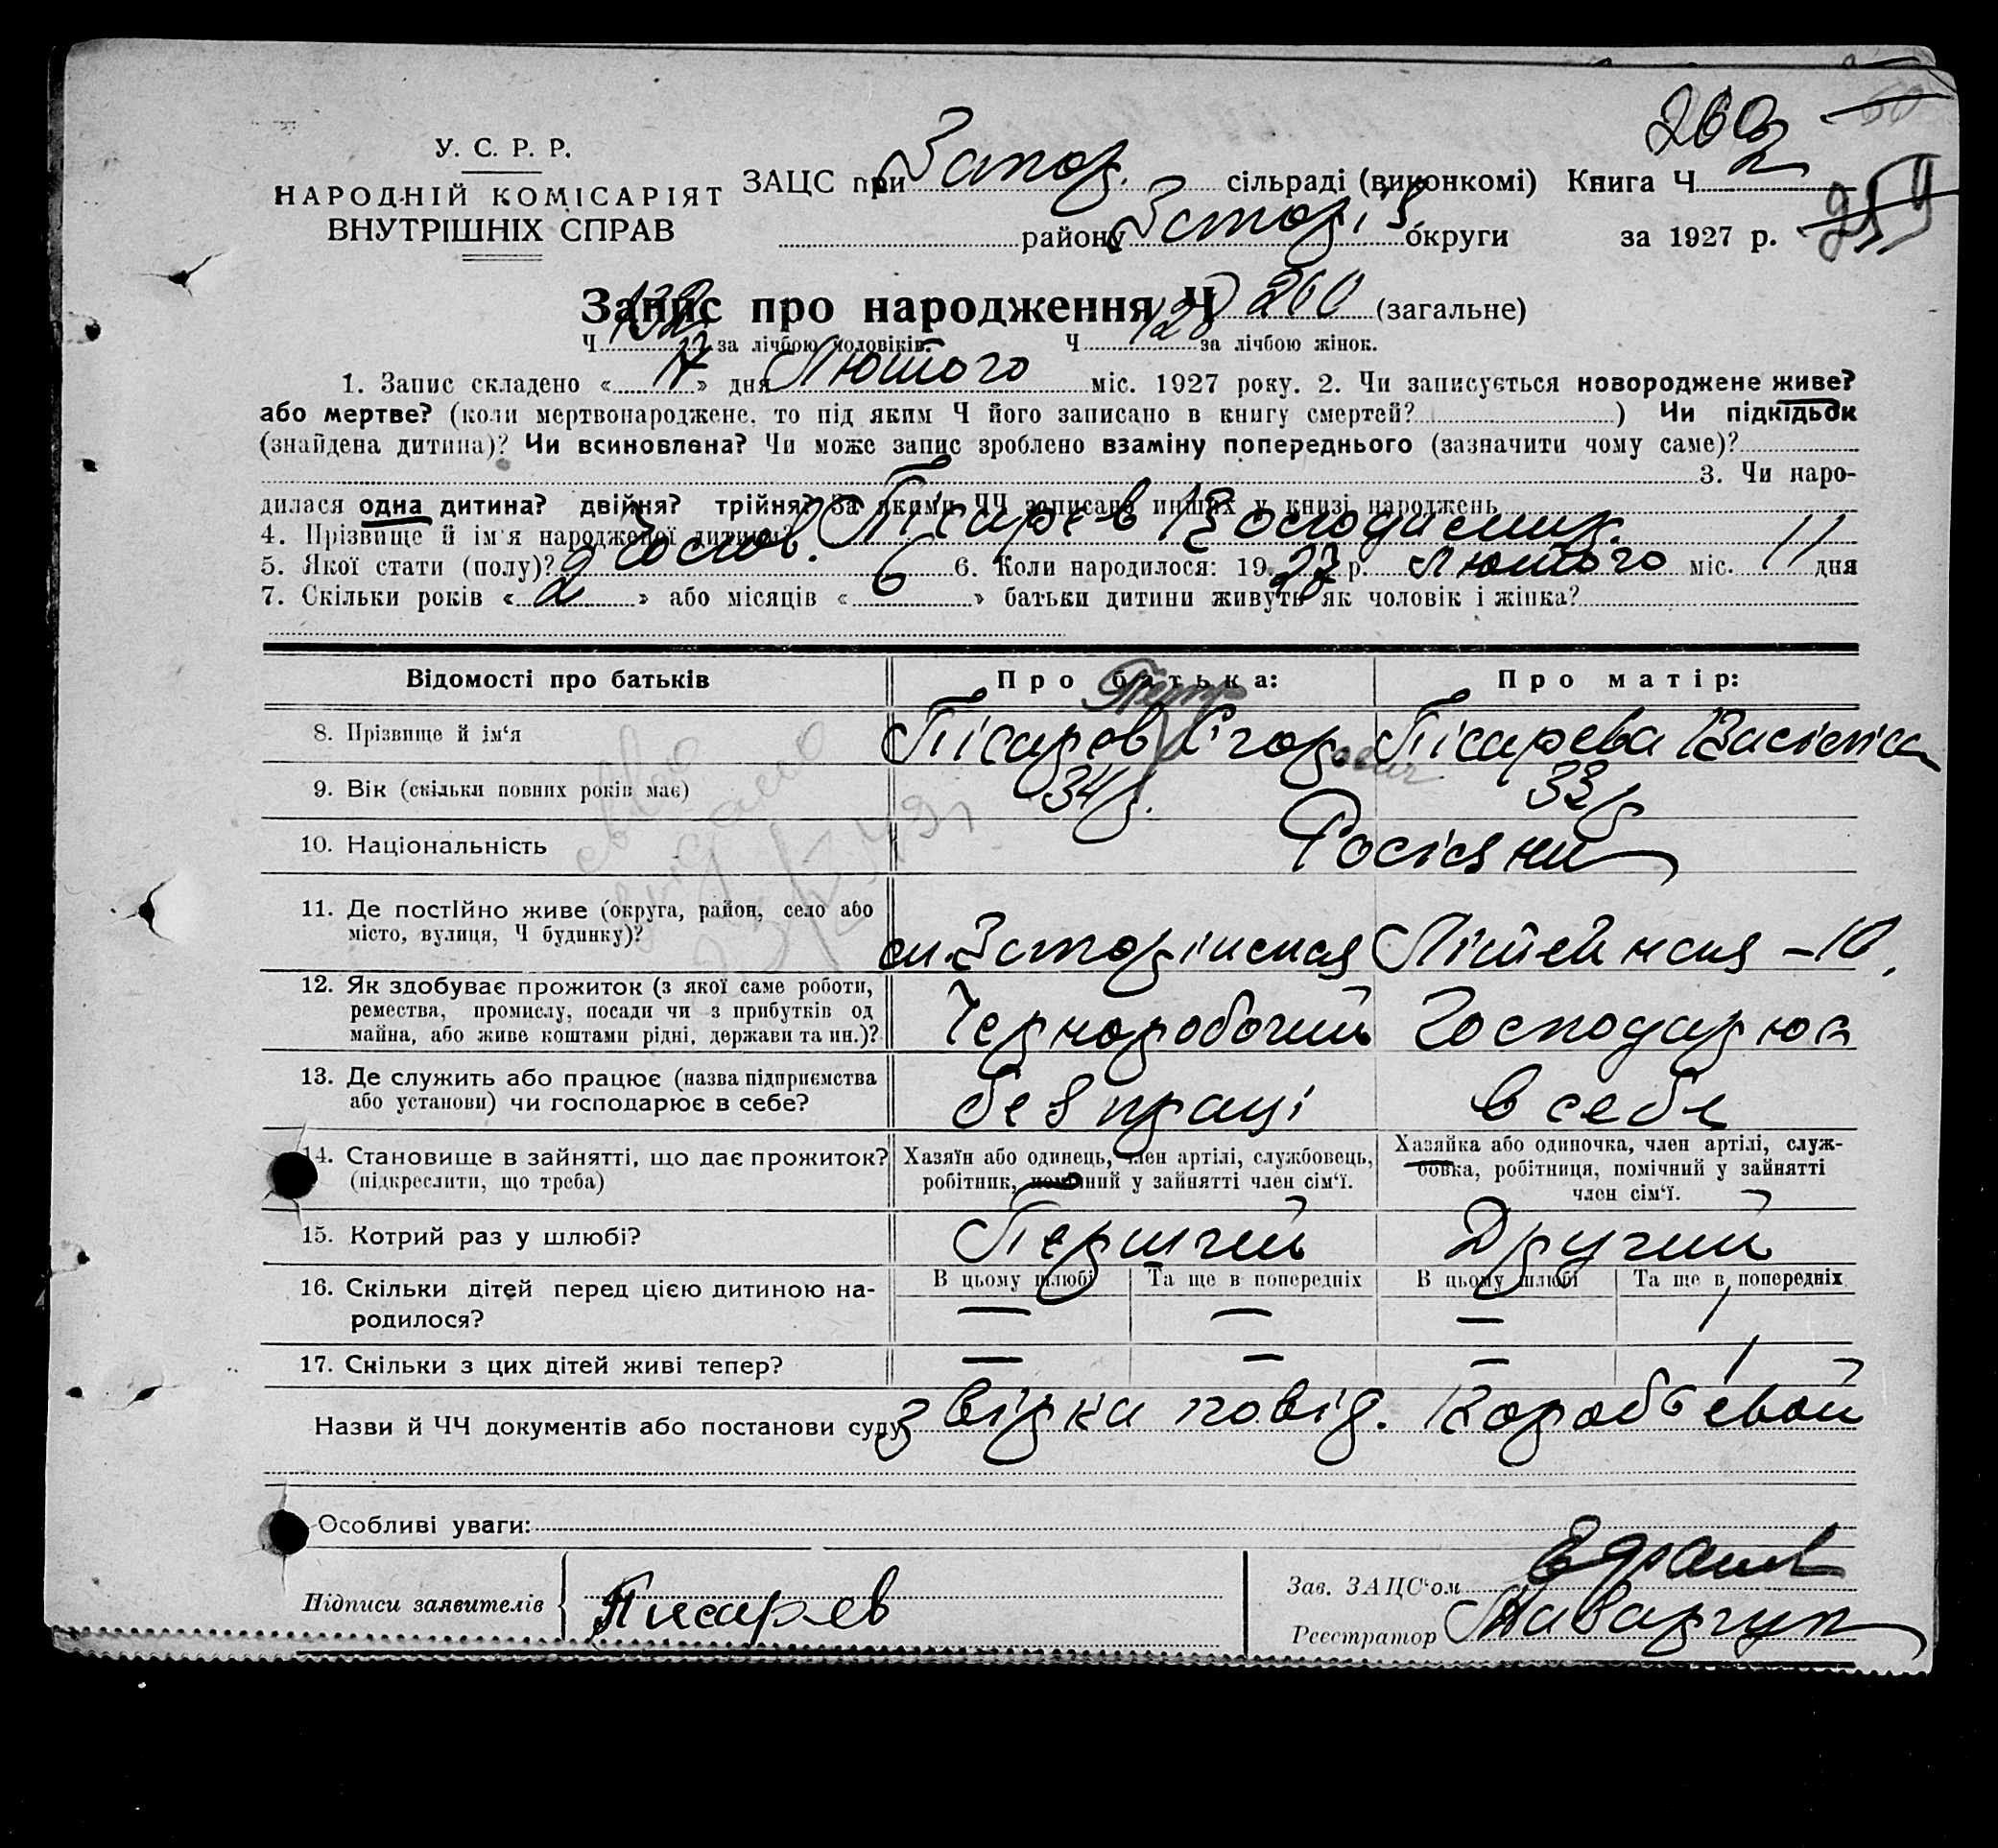 260
У. С. Р. Р.
НАРОДНІЙ КОМІСАРІЯТ
ВНУТРІШНІХ СПРАВ
ЗАЦС при Запор. сільраді (виконкомі) Книга Ч. 2
району Запоріз. округи за 1927 р.
Запис про народження Ч 260 (загальне)
Ч. 132 за лічбою чоловіків. Ч. 128 за лічбою жінок.
1. Запис складено «17» дня Лютого міс. 1927 року. 2. Чи записується новороджене живе?
або мертве? (коли мертвонароджене, то під яким Ч його записано в книгу смертей? ) Чи підкідьок
(знайдена дитина)? Чи всиновлена? Чи може запис зроблено взаміну попереднього (зазначити чому саме)?
3. Чи наро-
дилася одна дитина? двійня? трійня? За якими ЧЧ записано инших у книзі народжень
4. Прізвище й ім'я народженої дитини? Пісарєв
5. Якої стати (полу)? Чолов. 6. Коли народилося: 1927 р. Лютого міс. 11 дня
7. Скільки років «2» або місяців «6» батьки дитини живуть як чоловік і жінка?
Відомості про батьків
Про батька: Про матір:
8. Прізвище й ім'я Пісарєв Єгор Пісарєва
9. Вік (скільки повних років має) 34 р. 33 р
10. Національність Росіяни
11. Де постійно живе (округа, район, село або
місто, вулиця, Ч будинку)? Литейная – 10.
12. Як здобуває прожиток (з якої саме роботи,
ремества, промислу, посади чи з прибутків од
майна, або живе коштами рідні, держави та ин.)? Чорноробочий Господарює
13. Де служить або працює (назва підприємства
або установи) чи господарює в себе? без праці в себе
14. Становище в зайнятті, що дає прожиток?
(підкреслити, що треба)
Хазяїн або одинець, член артілі, службовець,
робітник, помічний у зайнятті член сім'ї.
Хазяйка або одиночка, член артілі, служ-
бовка, робітниця, помічний у зайнятті
член сім'ї.
15. Котрий раз у шлюбі? Перший Другий
16. Скільки дітей перед цією дитиною на-
родилося?
В цьому шлюбі Та ще в попередніх В цьому шлюбі Та ще в попередніх
— — — 1
17. Скільки з цих дітей живі тепер? — — — 1
Назви й ЧЧ документів або постанови суду звірка повід. Коробьевой
Особливі уваги:
Підписи заявителів Писарев
Зав. ЗАЦС'ом
Реєстратор